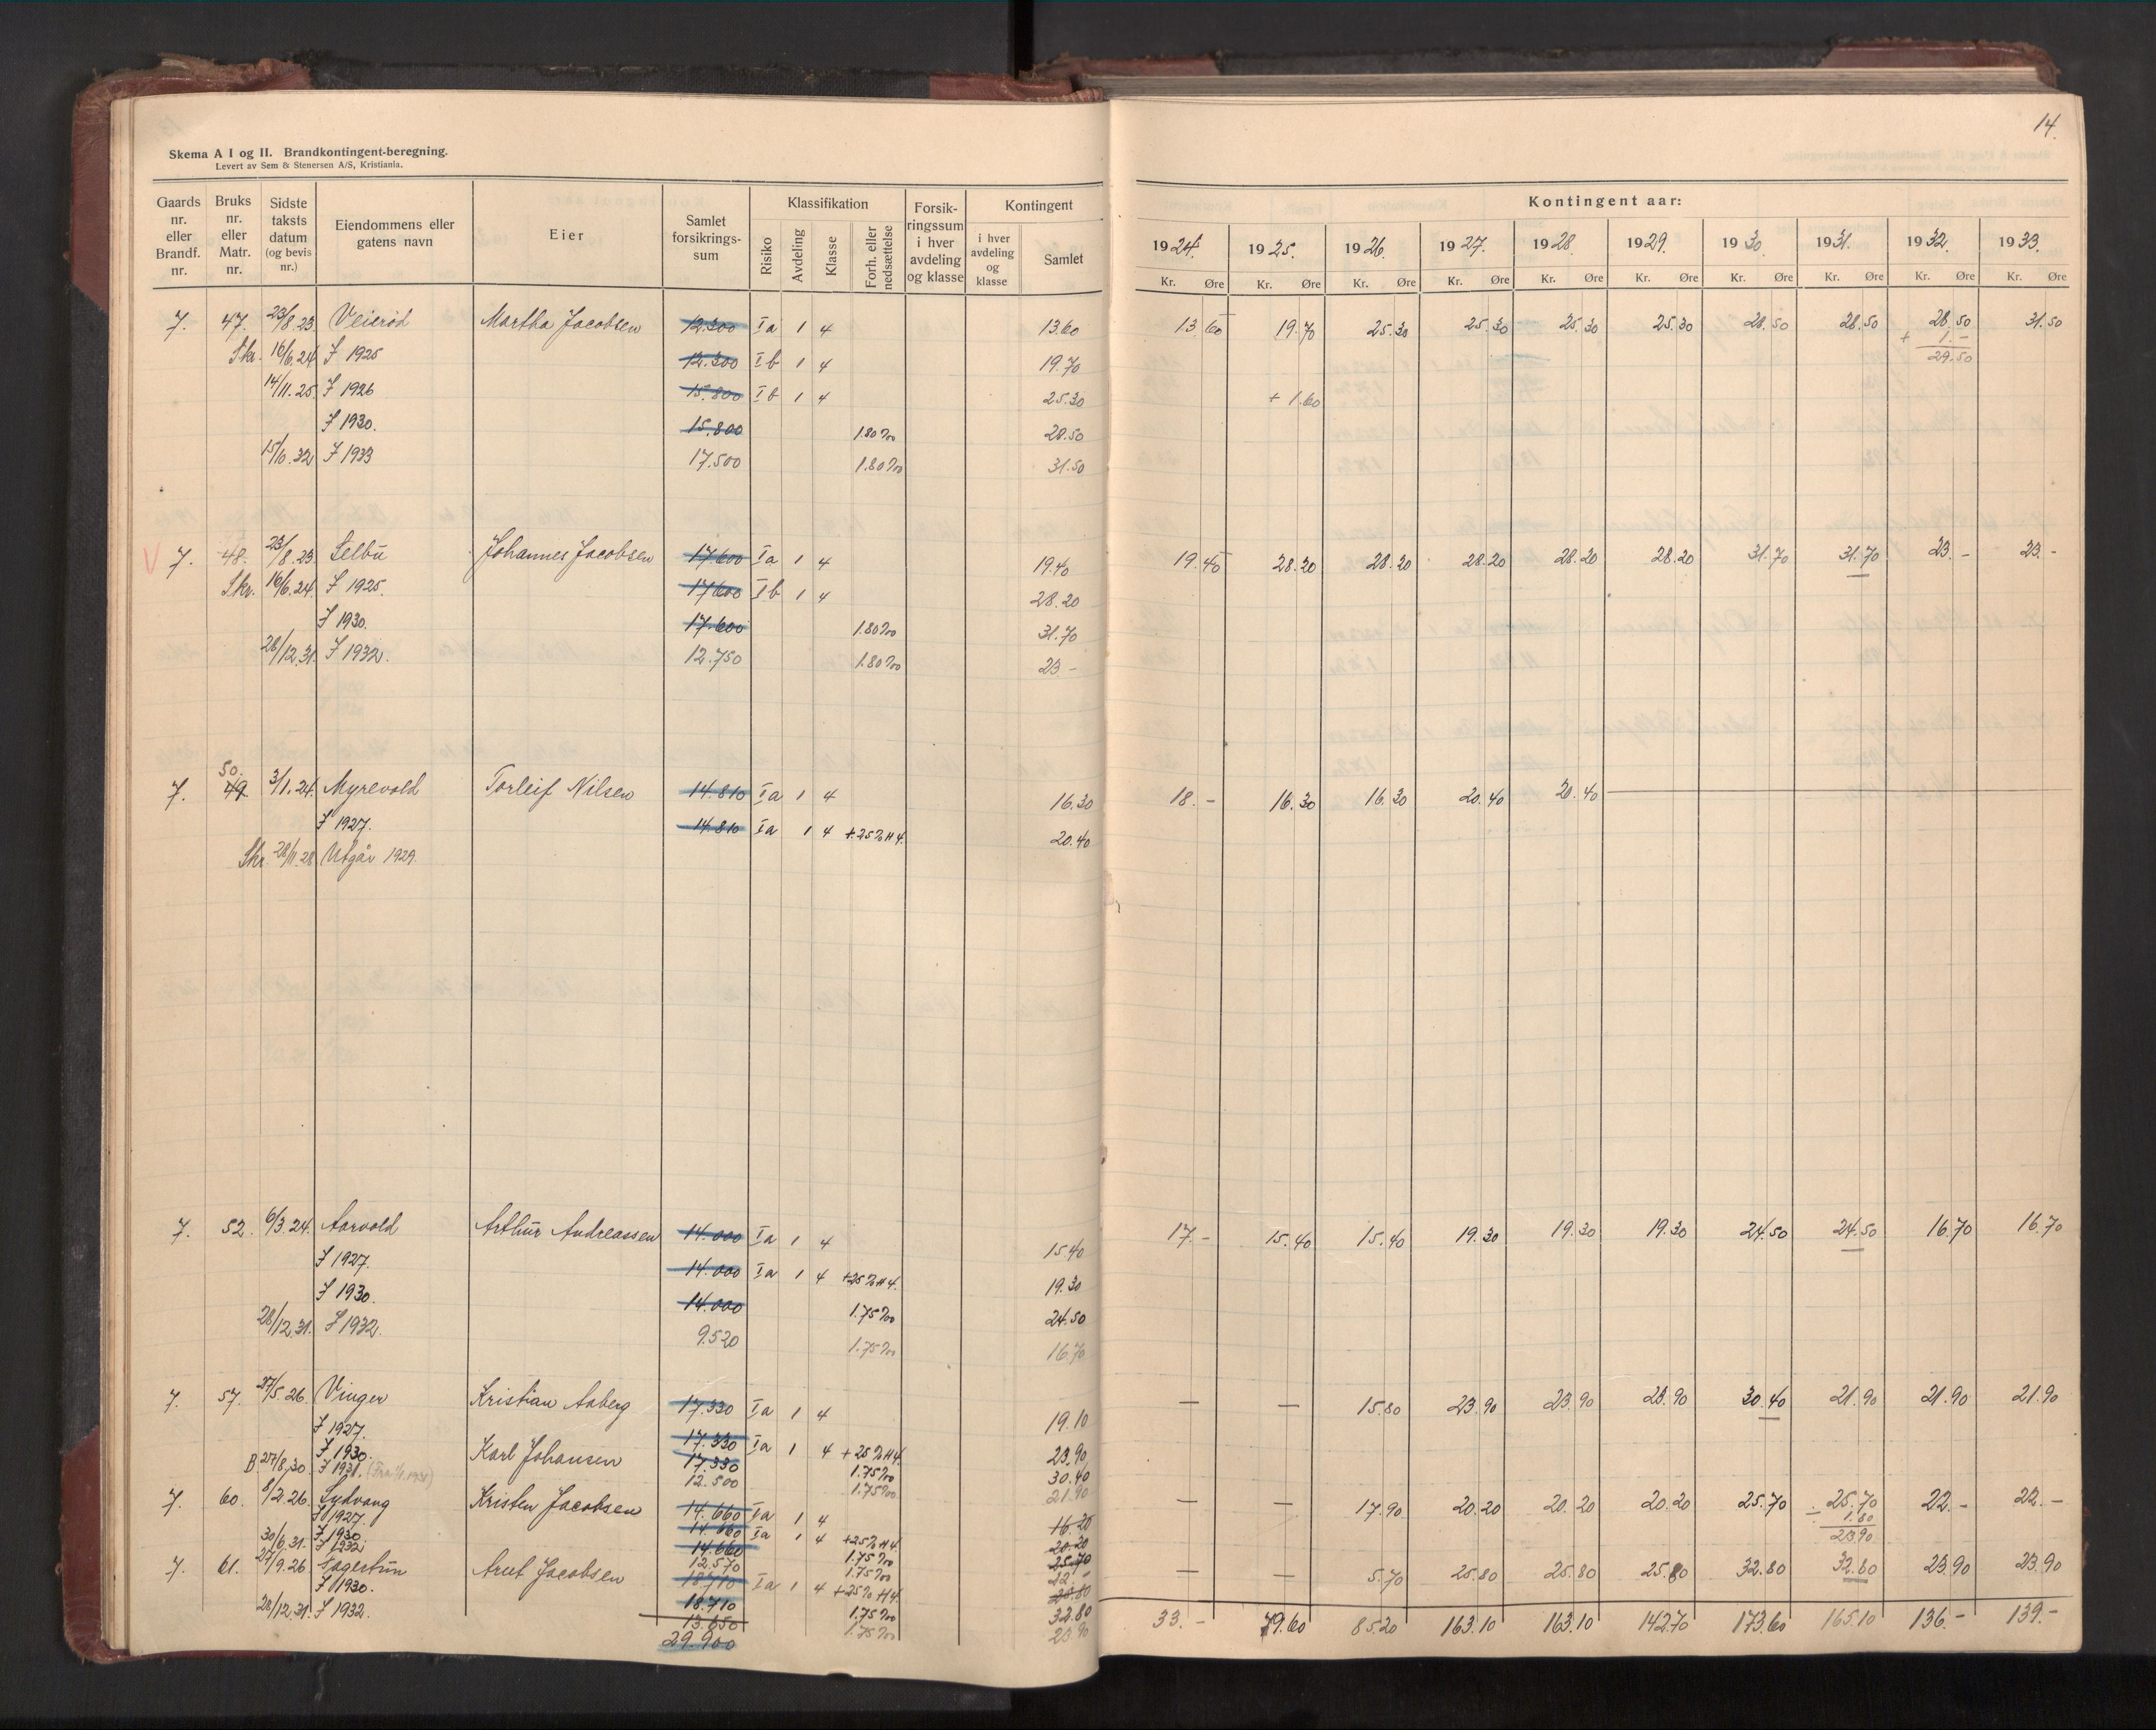 14.
Skema A I og II. Brandkontingent-beregning.
Levert av Sem & Stenersen A/S, Kristiania.
Gaards nr. eller Brandf. nr. | Bruks nr. eller Matr. nr. | Sidste taksts datum (og bevis nr.) | Eiendommens eller gatens navn | Eier | Samlet forsikrings-sum | Klassifikation: Risiko | Avdeling | Klasse | Forh. eller nedsættelse | Forsik-ringssum i hver avdeling og klasse | Kontingent: i hver avdeling og klasse | Samlet
Kontingent aar:
1924. 1925. 1926. 1927. 1928. 1929. 1930. 1931. 1932. 1933.
Kr. Øre Kr. Øre Kr. Øre Kr. Øre Kr. Øre Kr. Øre Kr. Øre Kr. Øre Kr. Øre Kr. Øre
7. 47. 23/8.23. Veierød Martha Jacobsen 12.300 Ia 1 4 13.60 13.60 19.70 25.30 25.30 25.30 25.30 28.50 28.50 28.50 31.50
+ 1.-
29.50
Skr. 16/6.24. F 1925 12.300 Ib 1 4 19.70
14/11.25. F 1926 15.800 Ib 1 4 25.30 + 1.60
F 1930. 15.800 1.80‰ 28.50
15/6.32 F 1933 17.500 1.80‰ 31.50
V 7. 48. 23/8.23. Selbu Johannes Jacobsen 17.600 Ia 1 4 19.40 19.40 28.20 28.20 28.20 28.20 28.20 31.70 31.70 23.- 23.-
Skr. 16/6.24. F 1925. 17600 Ib 1 4 28.20
F 1930. 17.600 1.80‰ 31.70
28/12.31. F 1932. 12.750 1.80‰ 23-
50.
7. 49. 3/1.24. Myrevold Torleif Nilsen 14.810 Ia 1 4 16.30 18.- 16.30 16.30 20.40 20.40
F 1927. 14.810 Ia 1 4 +25% H4. 20.40
Skr. 28/11.28 Utgår 1929.
7. 52. 6/3.24. Aarvold Arthur Andreassen 14.000 Ia 1 4 15.40 17.- 15.40 15.40 19.30 19.30 19.30 24.50 24.50 16.70 16.70
F 1927. 14.000 Ia 1 4 +25% H4. 19.30
F 1930. 14.000 1.75‰ 24.50
28/12.31. F 1932. 9.520 1.75‰ 16.70
7. 57. 27/5.26 Vinger Kristian Aaberg 17.330 Ia 1 4 19.10 — — 15.80 23.90 23.90 23.90 30.40 21.90 21.90 21.90
F 1927. 17.330 Ia 1 4 +25% H4. 23.90
F 1930. Karl Johansen 17.330 1.75‰ 30.40
B. 27/8.30. F 1931. (Fra 1/1 1931) 12.500 1.75‰ 21.90
7. 60. 8/2.26. Sydvang Kristen Jacobsen 14.660 Ia 1 4 16.20 — — 17.90 20.20 20.20 20.20 25.70 25.70 22.- 22.-
÷ 1.80
23.90
F 1927. 14.660 Ia 1 4 +25% H4 20.20
F 1930 14.660 1.75‰ 25.70
30/6.31. F 1932 12.570 1.75‰ 22-
7. 61. 27/9.26 Arut Jacobsen 18.710 Ia 1 4 +25% H4. 25.80 — — 5.70 25.80 25.80 25.80 32.80 32.80 23.90 23.90
F 1930. 18.710 1.75‰ 32.80
28/12.31. F 1932. 13.650 1.75‰ 23.90
29.900 33.- 79.60 85.20 163.10 163.10 142.70 173.60 165.10 136.- 139.-